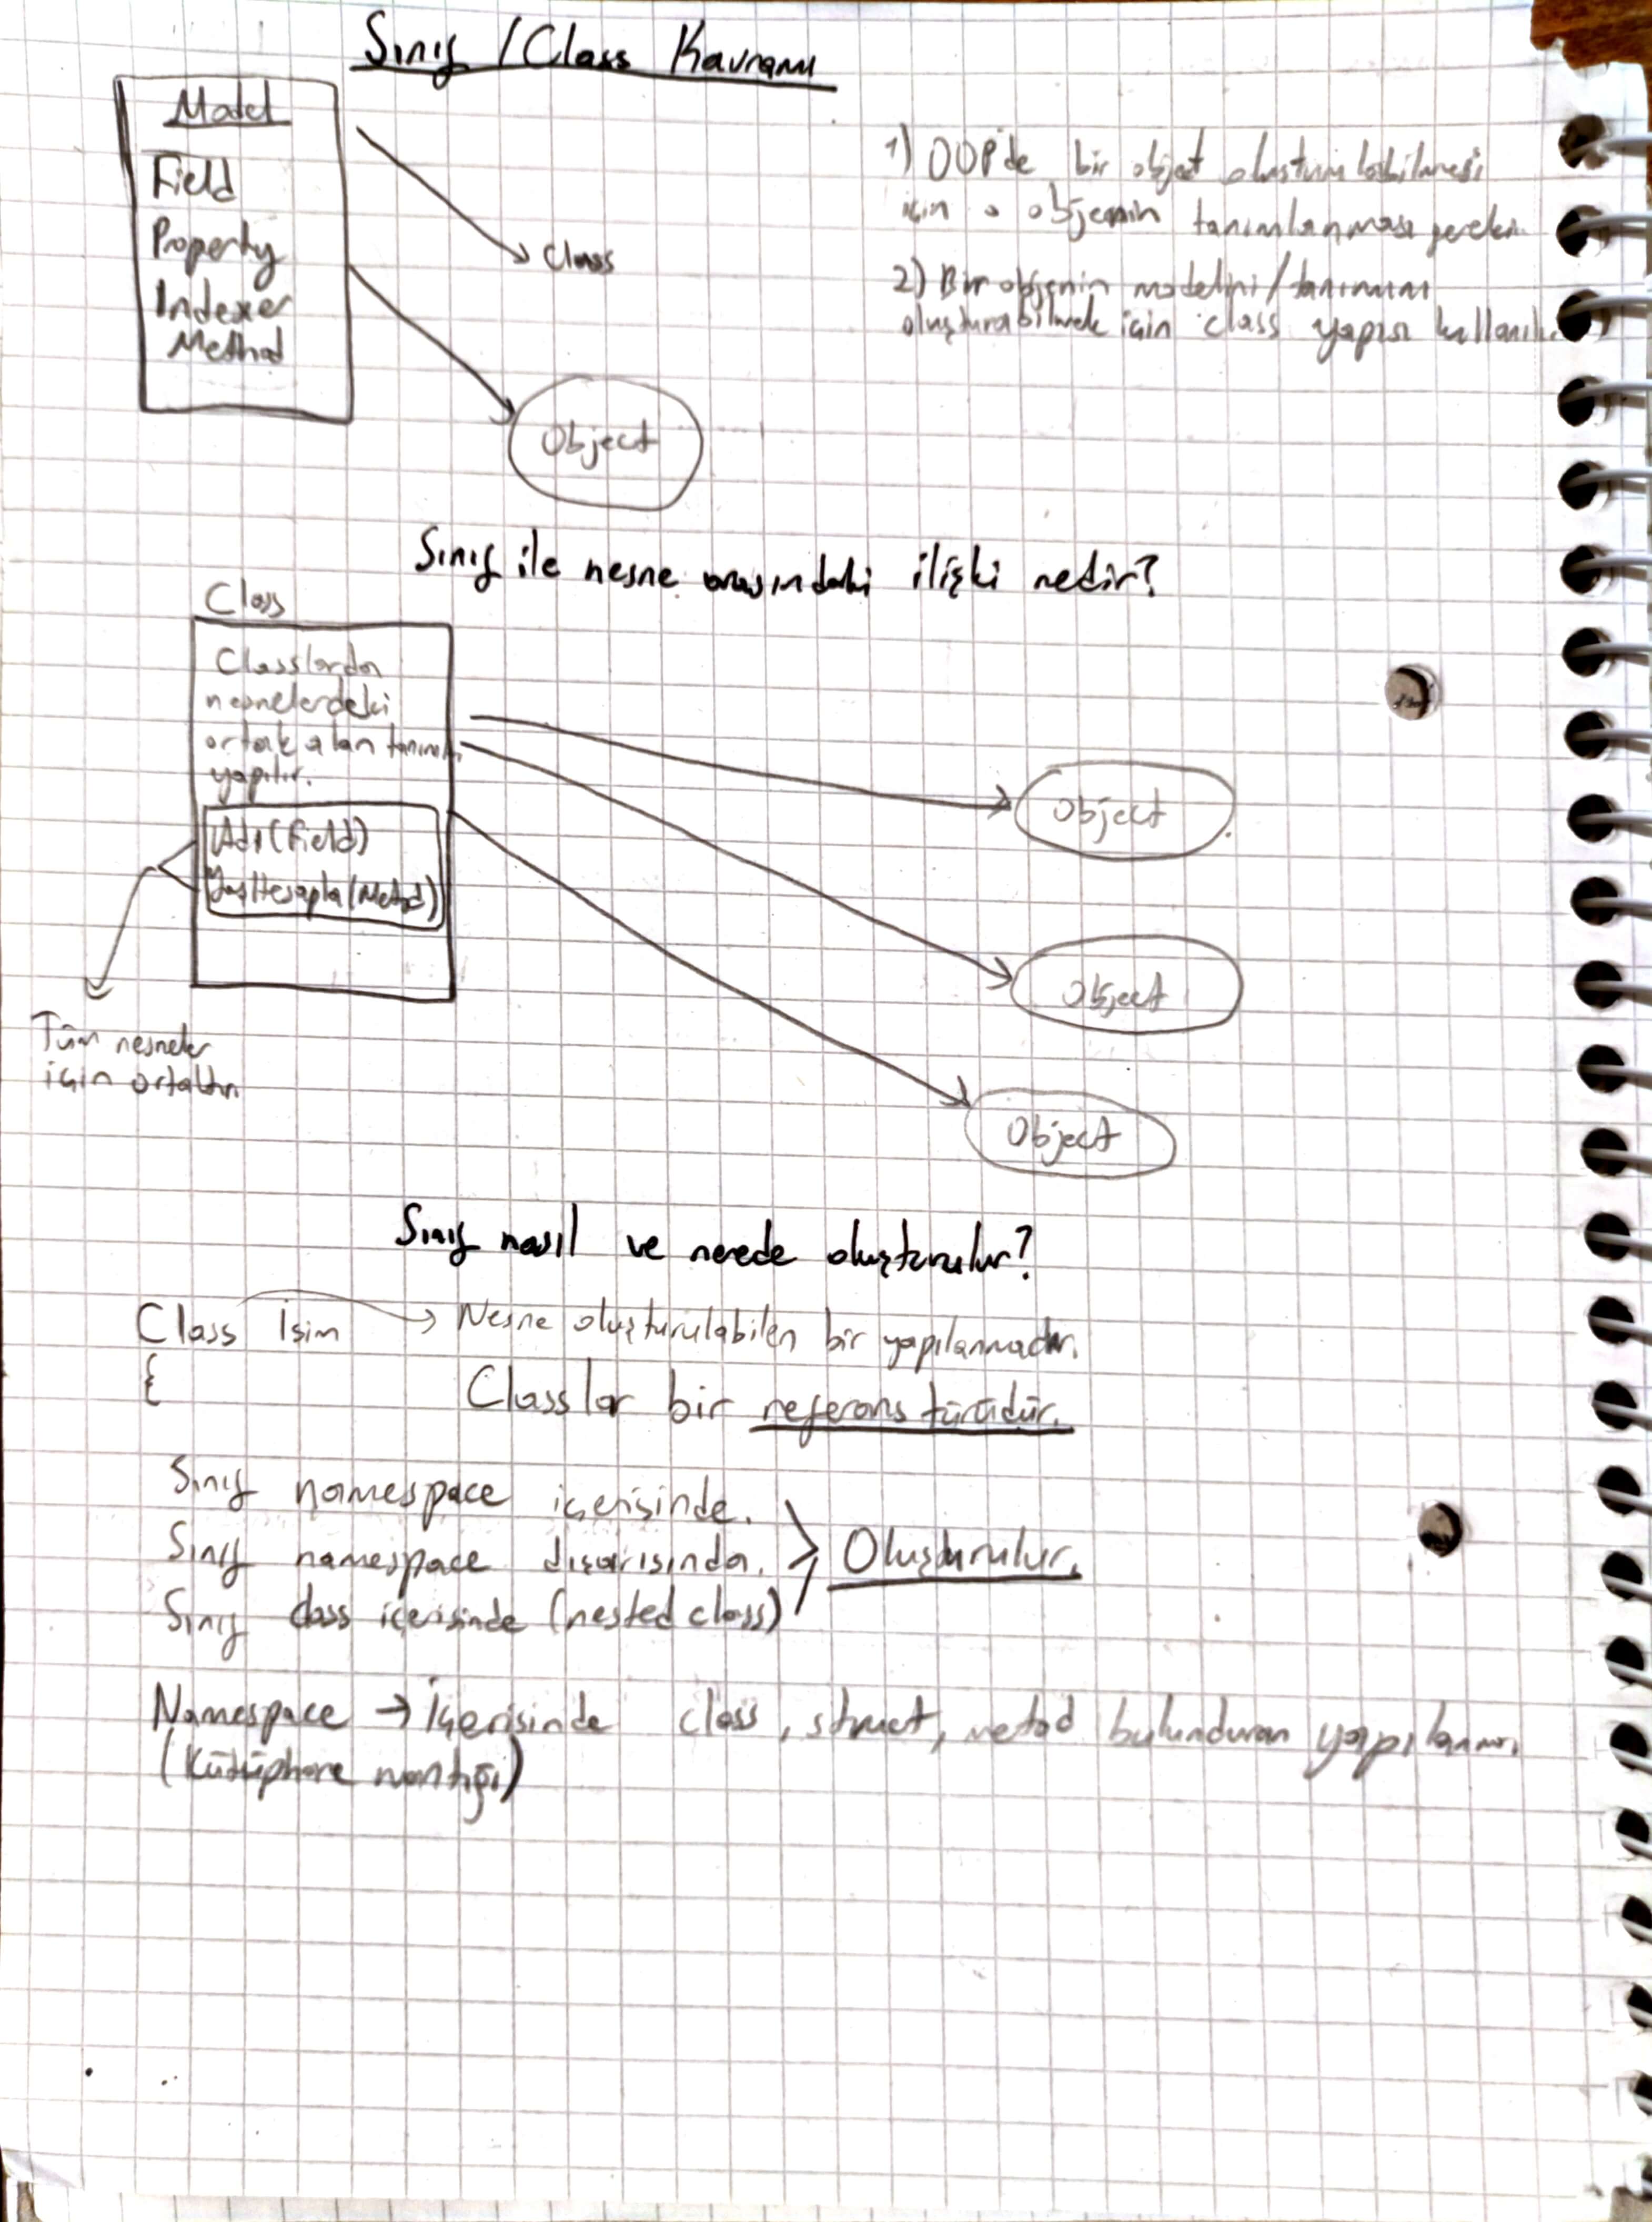 Sınıf / Class Kavramı
Model
Field
Property
Indexer
Method
Class
Object
1) OOP'de bir object oluşturulabilmesi
için o objenin tanımlanması gerekir.
2) Bir objenin modelini/tanımını
oluşturabilmek için class yapısı kullanılır.
Sınıf ile nesne arasındaki ilişki nedir?
Class
Classlardan
nesnelerdeki
ortak alan tanımı
yapılır.
Adı(Field)
YaşHesapla(Metod)
Tüm nesneler
için ortaktır.
Object
Object
Object
Sınıf nasıl ve nerede oluşturulur?
Class İsim → Nesne oluşturulabilen bir yapılanmadır.
{
Classlar bir referans türüdür.
Sınıf namespace içerisinde.
Sınıf namespace dışarısında.
Sınıf class içerisinde (nested class)
Oluşturulur.
Namespace → İçerisinde class, struct, metod bulunduran yapılanma.
(Kütüphane mantığı)